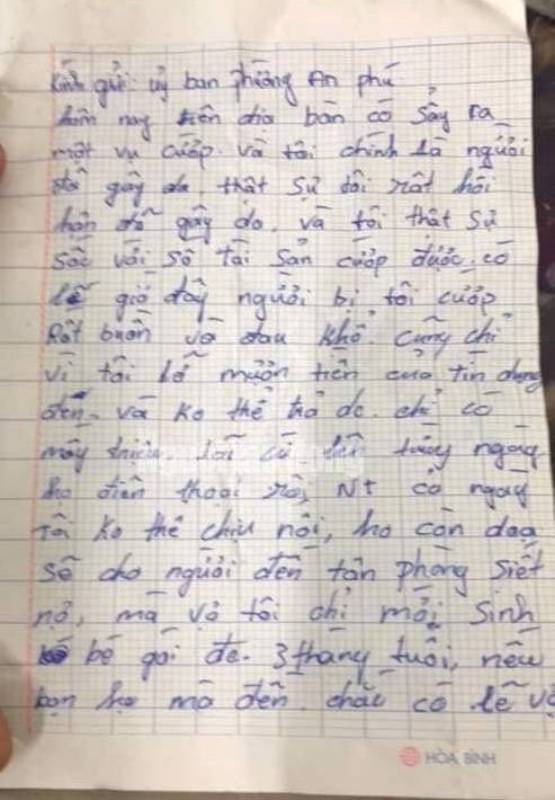 Kính gửi: uỷ ban phường An phú
hôm nay trên địa bàn có sảy ra
một vụ cướp. và tôi chính là người
đã gây da, thật sự tôi rất hối
hận đã gây da, và tôi thật sự
sốc với số tài sản cướp được, có
lẽ giờ đây người bị tôi cướp
Rất buồn và đau khổ. cũng chỉ
vì tôi lỡ mượn tiền của tín dụng
đen. và ko thể trả dc. chỉ có
mấy triệu. lãi cứ lên từng ngày
họ điện thoại rồi, NT cả ngày
Tôi ko thể chịu nổi, họ còn doạ
sẽ cho người đến tận phòng siết
nợ, mà vợ tôi chỉ mới sinh
bé gái đc. 3 tháng tuổi, nếu
bọn họ mà đến. chắc có lẽ vợ
HÒA BÌNH